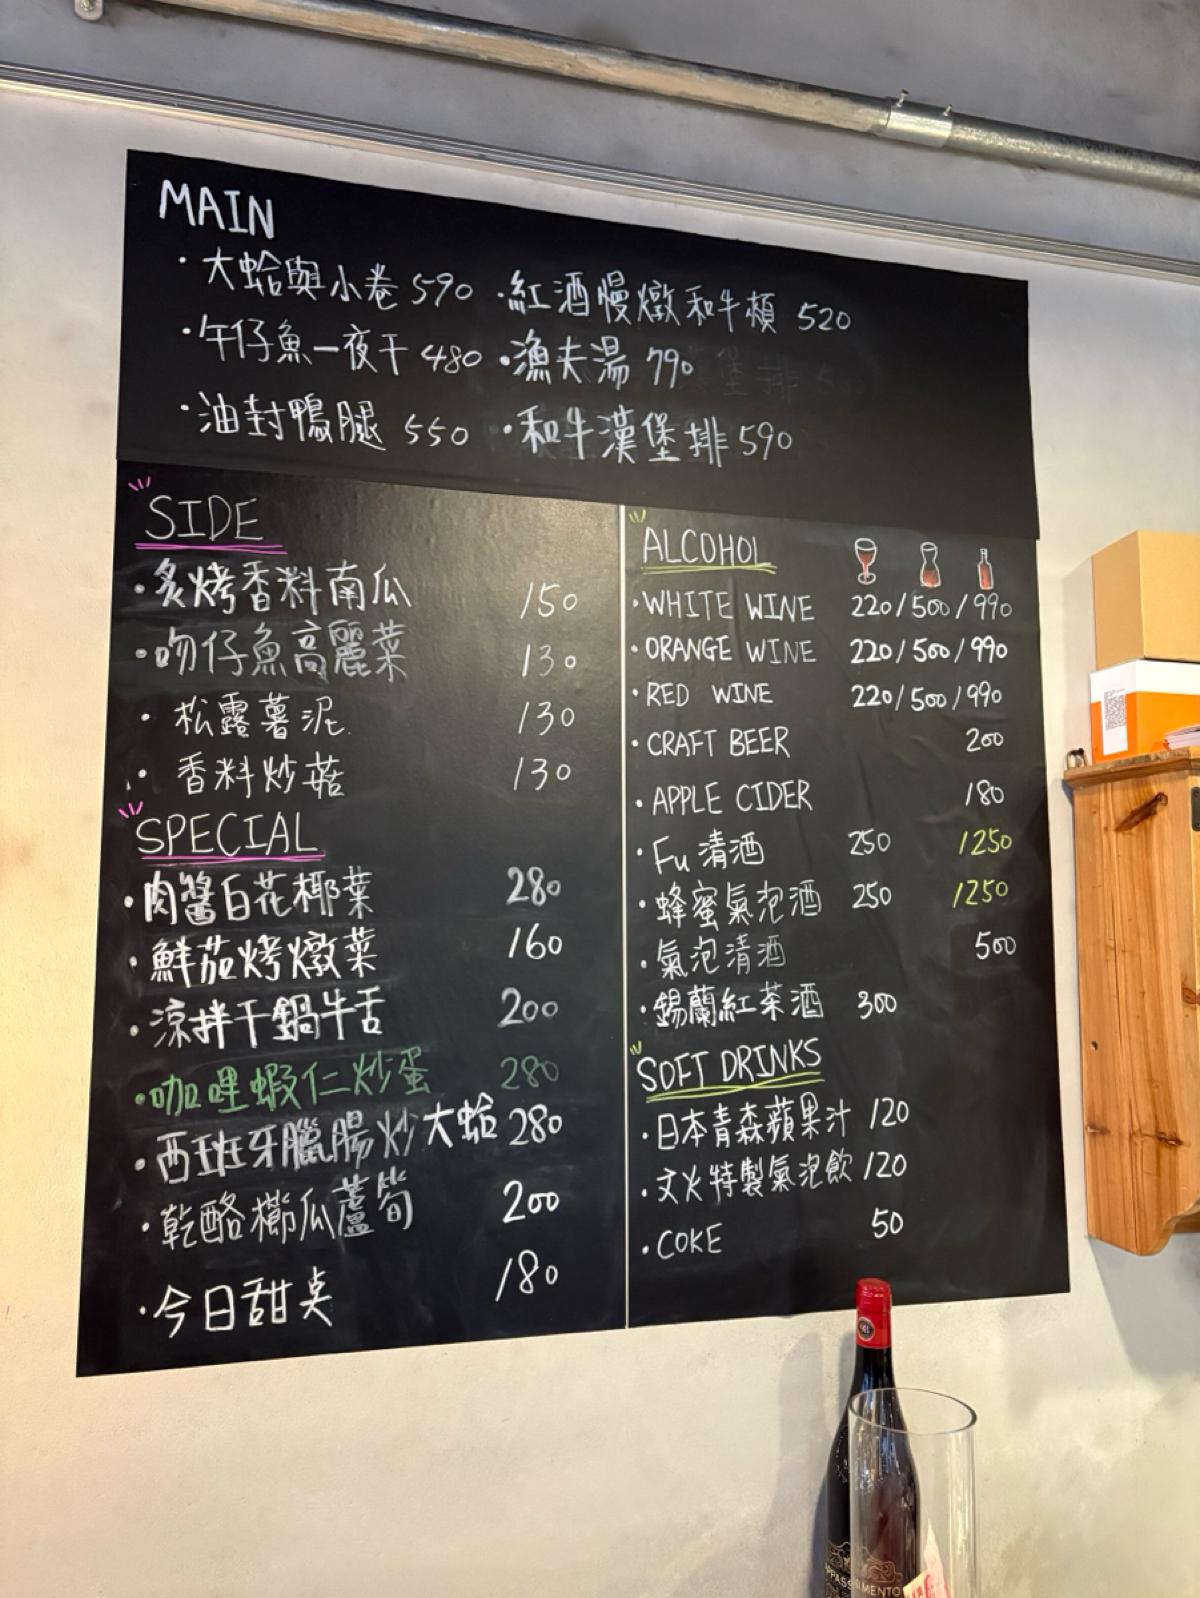 MAIN
·大蛤與小卷 590 ·紅酒慢燉和牛頰 520
·午仔魚一夜干 480 ·漁夫湯 790
·油封鴨腿 550 ·和牛漢堡排 590
SIDE
·炙烤香料南瓜 150
·吻仔魚高麗菜 130
·松露薯泥 130
·香料炒菇 130
SPECIAL
·肉醬白花椰菜 280
·鮮茄烤燉菜 160
·涼拌干鍋牛舌 200
·咖哩蝦仁炒蛋 280
·西班牙臘腸炒大蛤 280
·乾酪櫛瓜蘆筍 200
·今日甜点 180
ALCOHOL
·WHITE WINE 220/500/990
·ORANGE WINE 220/500/990
·RED WINE 220/500/990
·CRAFT BEER 200
·APPLE CIDER 180
·Fu 清酒 250 1250
·蜂蜜氣泡酒 250 1250
·氣泡清酒 500
·錫蘭紅茶酒 300
SOFT DRINKS
·日本青森蘋果汁 120
·文火特製氣泡飲 120
·COKE 50